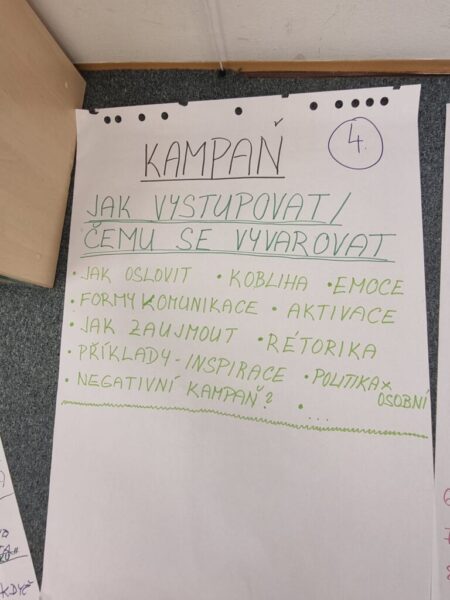 KAMPAŇ
4.
JAK VYSTUPOVAT/
ČEMU SE VYVAROVAT
• JAK OSLOVIT • KOBLIHA • EMOCE
• FORMY KOMUNIKACE • AKTIVACE
• JAK ZAUJMOUT • RÉTORIKA
• PŘÍKLADY - INSPIRACE • POLITIKA x
OSOBNÍ
• NEGATIVNÍ KAMPAŇ? • ...
KDYŽ